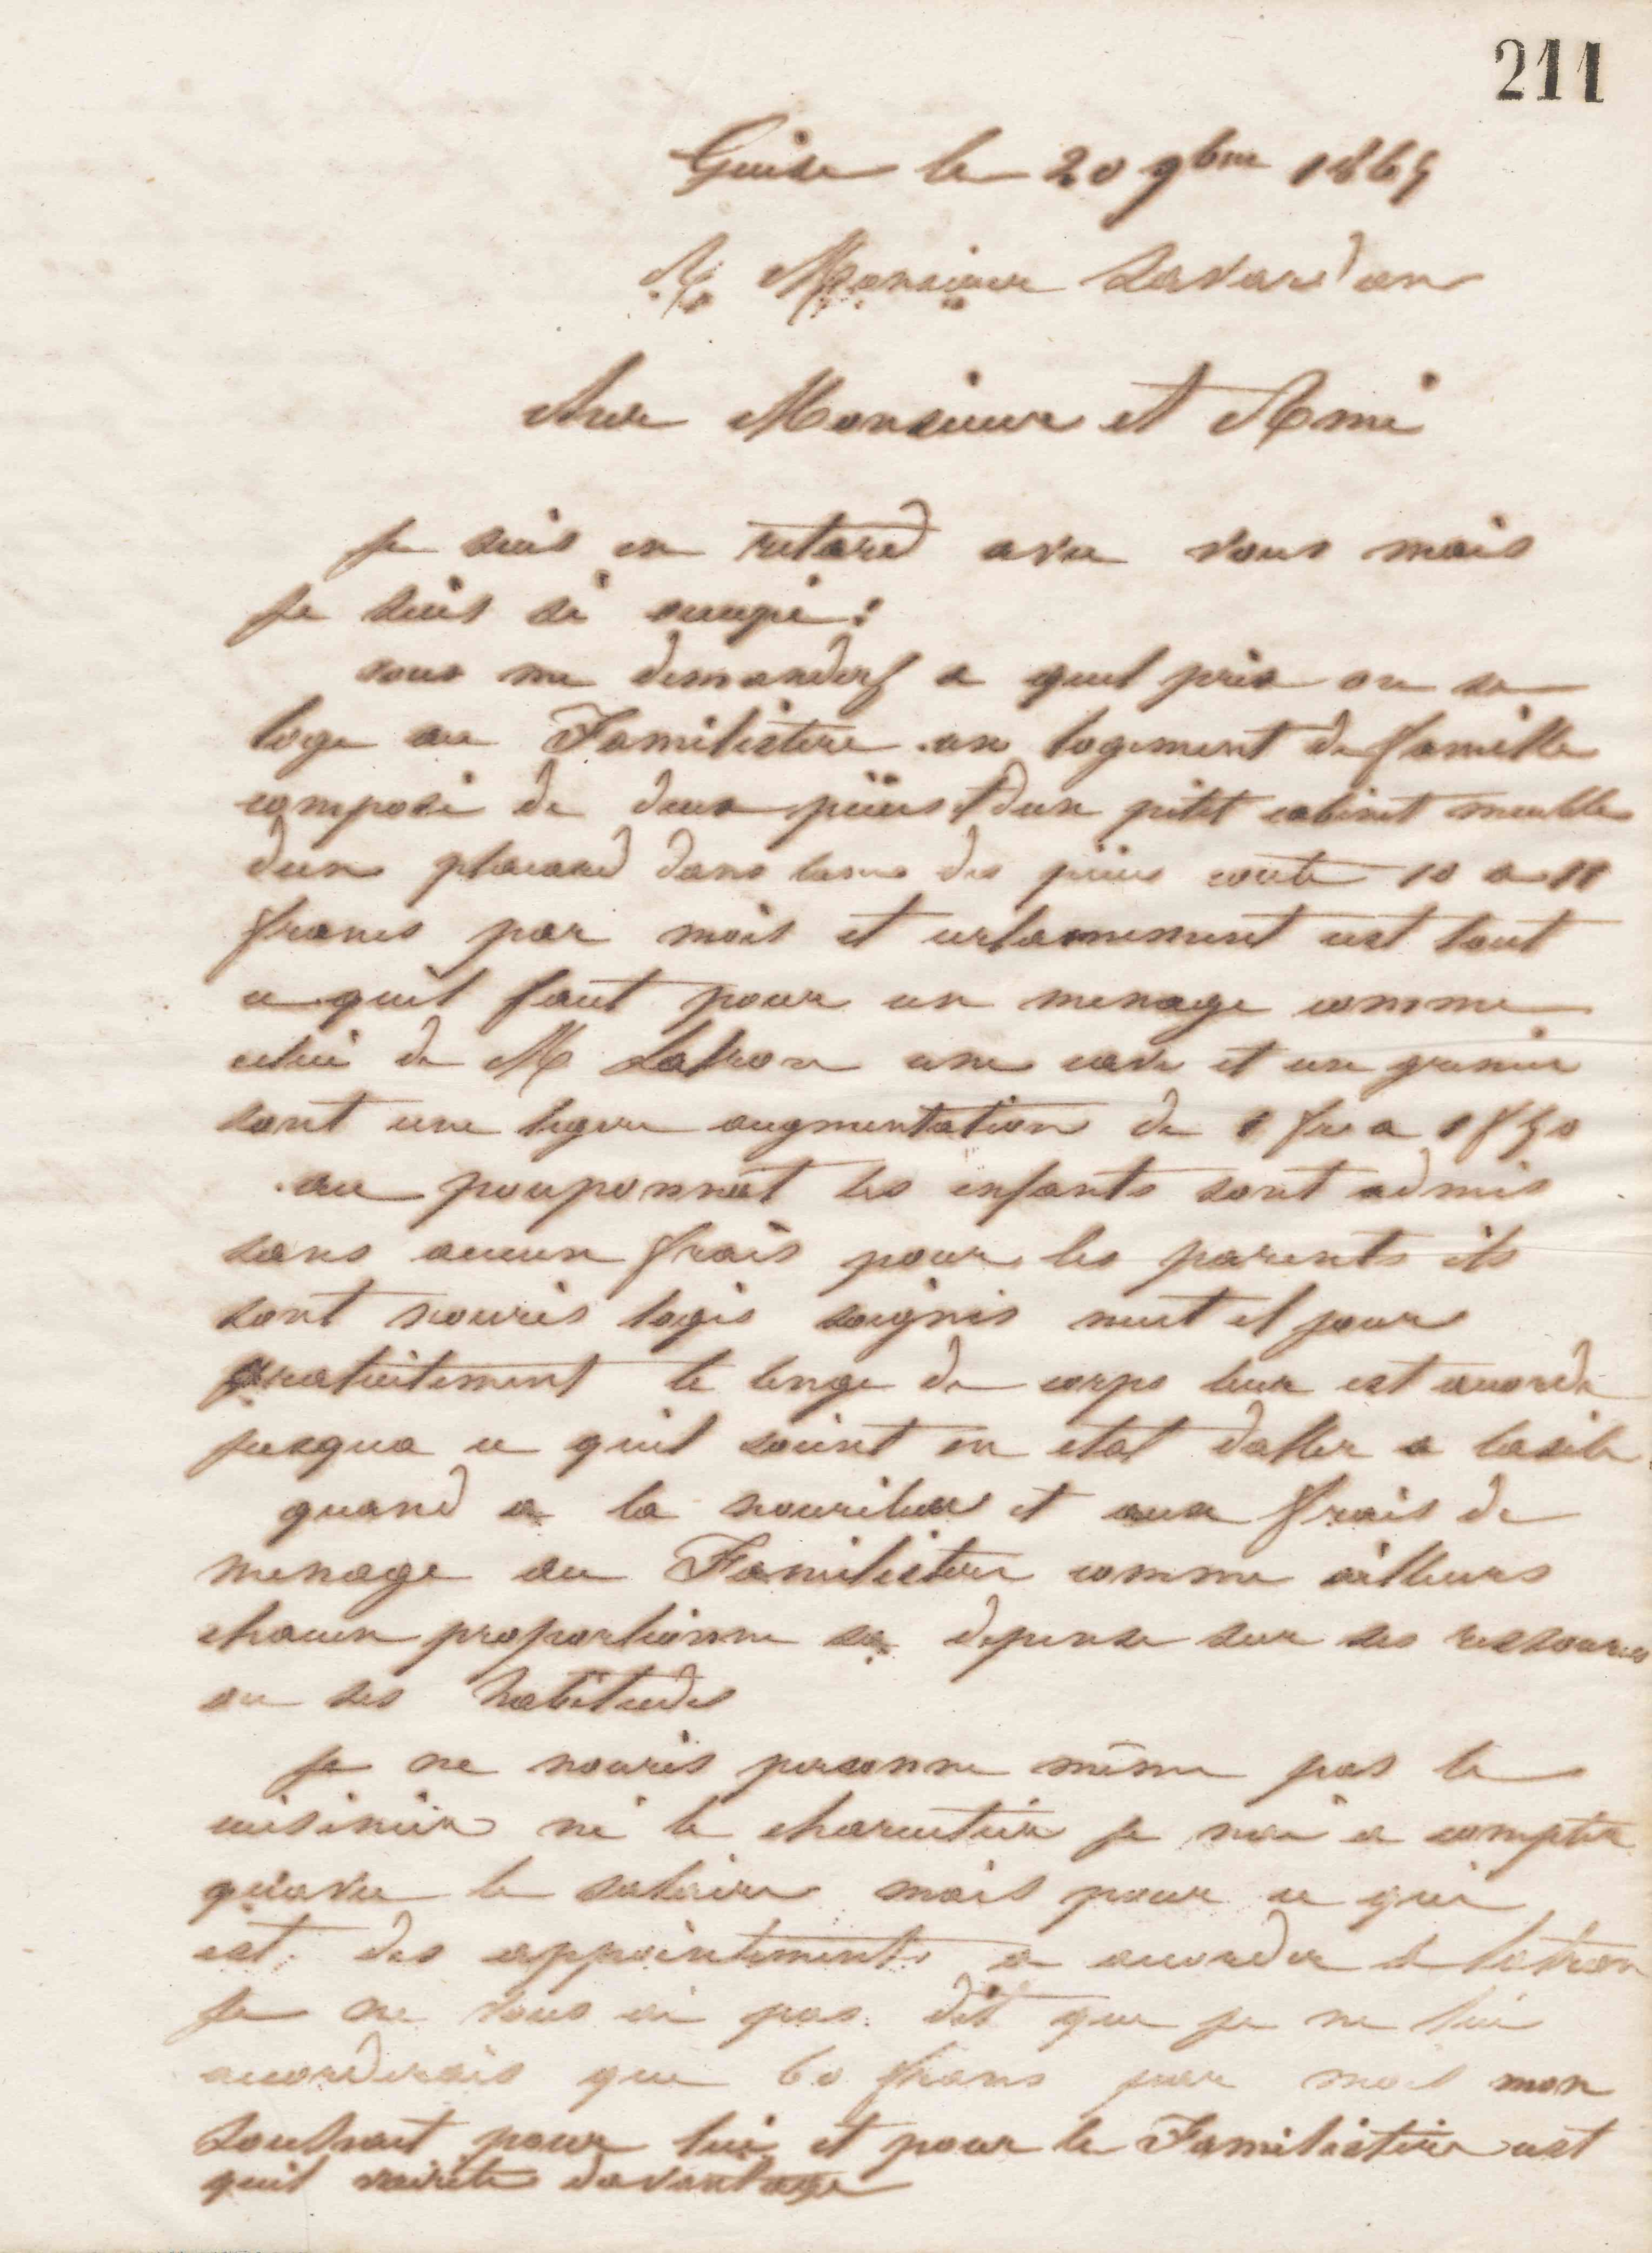 211
Guise le 20 9bre 1865
A Monsieur Savardan
Cher Monsieur et Ami
je suis en retard avec vous mais
je suis si occupé!
vous me demandez a quel prix on se
loge au Familistère un logement de famille
composé de deux pièces et d'un petit cabinet meublé
d'un placard dans l'une des pièces coute 10 a 11
francs par mois et certainement c'est tout
ce qu'il faut pour un menage comme
celui de M Latron une cave et un grenier
sont une légère augmentation de 1 fr a 1f50
au pouponnat les enfants sont admis
sans aucun frais pour les parents ils
sont nouris logés soignés nuit et jour
gratuitement le linge de corps leur est accordé
jusqua ce quil soient en etat daller a lasile
quand a la nouriture et aux frais de
menage au Familistère comme ailleurs
chacun proportionne sa depense sur ses ressources
ou ses habitudes
je ne nouris personne même pas le
cuisinier ni le charcutier je nai a compter
qu'avec le salaire mais pour ce qui
est des appointements a accorder a Latron
je ne vous ai pas dit que je ne lui
accorderais que 60 francs par mois mon
souhait pour lui et pour le Familistère est
quil mérite davantage